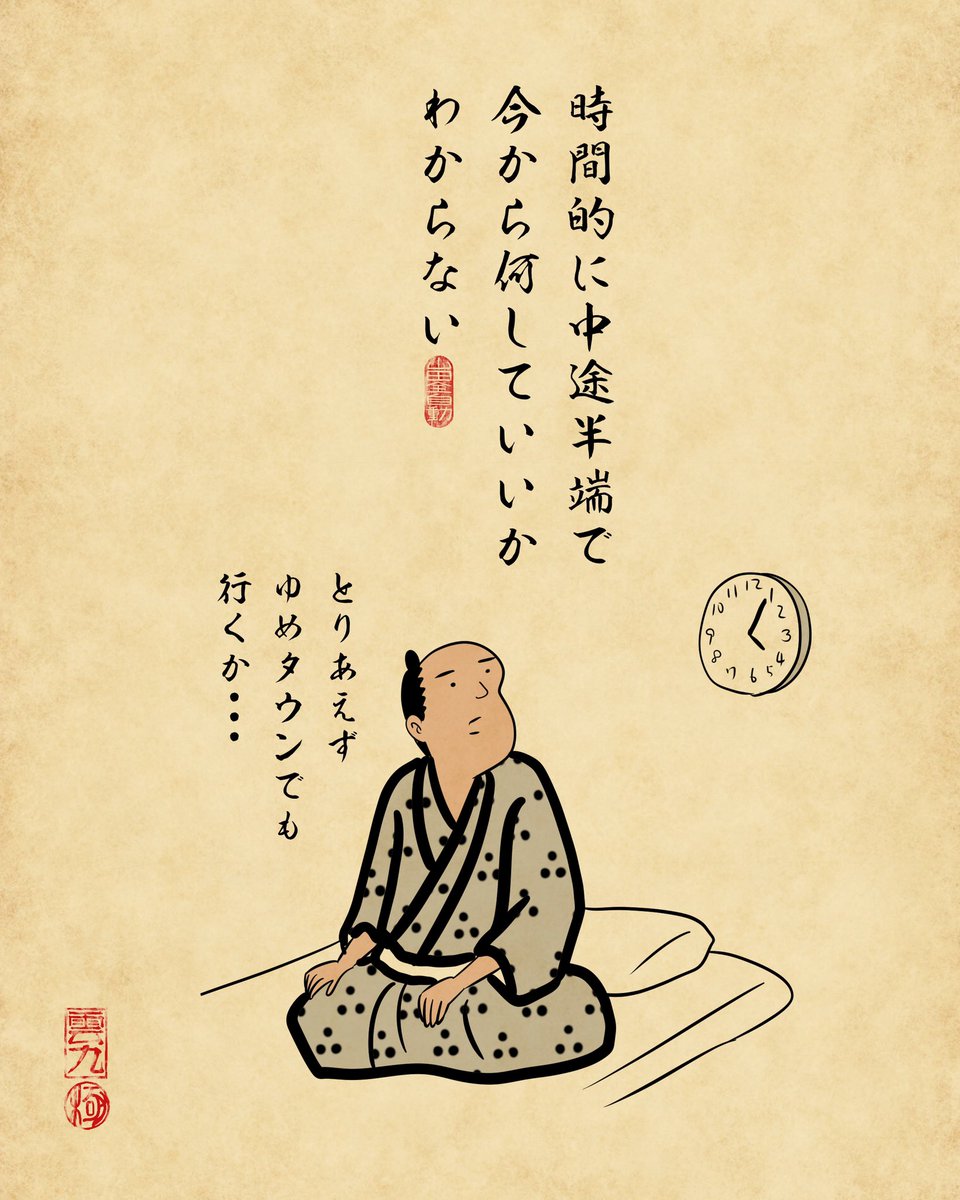 時間的に中途半端で
今から何していいか
わからない
とりあえず
ゆめタウンでも
行くか・・・
12
1
2
3
4
5
6
7
8
9
10
11